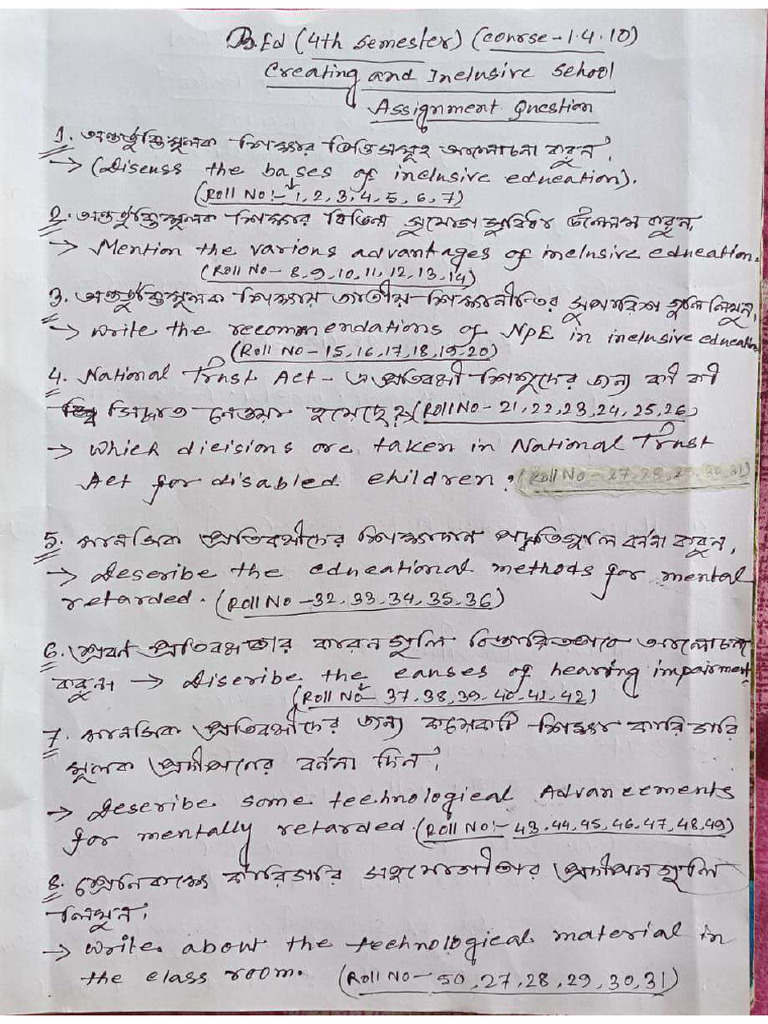 B.Ed (4th Semester) (Course-1.4.10)
Creating and Inclusive School
Assignment Question
1. অন্তর্ভুক্তিমূলক শিক্ষার ভিত্তিসমূহ আলোচনা করুন।
→ (Discuss the bases of inclusive education).
(Roll No:- 1, 2, 3, 4, 5, 6, 7)
2. অন্তর্ভুক্তিমূলক শিক্ষার বিভিন্ন সুযোগ সুবিধা উল্লেখ করুন,
→ Mention the various advantages of inclusive education.
(Roll No- 8, 9, 10, 11, 12, 13, 14)
3. অন্তর্ভুক্তিমূলক শিক্ষায় জাতীয় শিক্ষানীতির সুপারিশ গুলি লিখুন,
→ Write the recommendations of NPE in inclusive education
(Roll No- 15, 16, 17, 18, 19, 20)
4. National Trust Act - এ প্রতিবন্ধী শিশুদের জন্য কী কী
সিদ্ধান্ত নেওয়া হয়েছে? (Roll No- 21, 22, 23, 24, 25, 26)
→ Which dicisions are taken in National Trust
Act for disabled children. (Roll No- 27, 28, 29, 30, 31)
5. মানসিক প্রতিবন্ধীদের শিক্ষাদান পদ্ধতিগুলি বর্ননা করুন,
→ describe the educational methods for mental
retarded. (Roll No -32, 33, 34, 35, 36)
6. শ্রবণ প্রতিবন্ধতার কারনগুলি বিস্তারিতভাবে আলোচনা
করুন। → discribe the causes of hearing impairment
(Roll No- 37, 38, 39, 40, 41, 42)
7. মানসিক প্রতিবন্ধীদের জন্য কয়েকটি শিক্ষা কারিগরি
মূলক প্রদীপনের বর্ননা দিন।
→ describe some technological Advancements
for mentally retarded. (Roll No:- 43, 44, 45, 46, 47, 48, 49)
8. শ্রেনিকক্ষে কারিগরি সহযোগীতার প্রদীপনগুলি
লিখুন।
→ write about the technological material in
the class room. (Roll No- 50, 27, 28, 29, 30, 31)